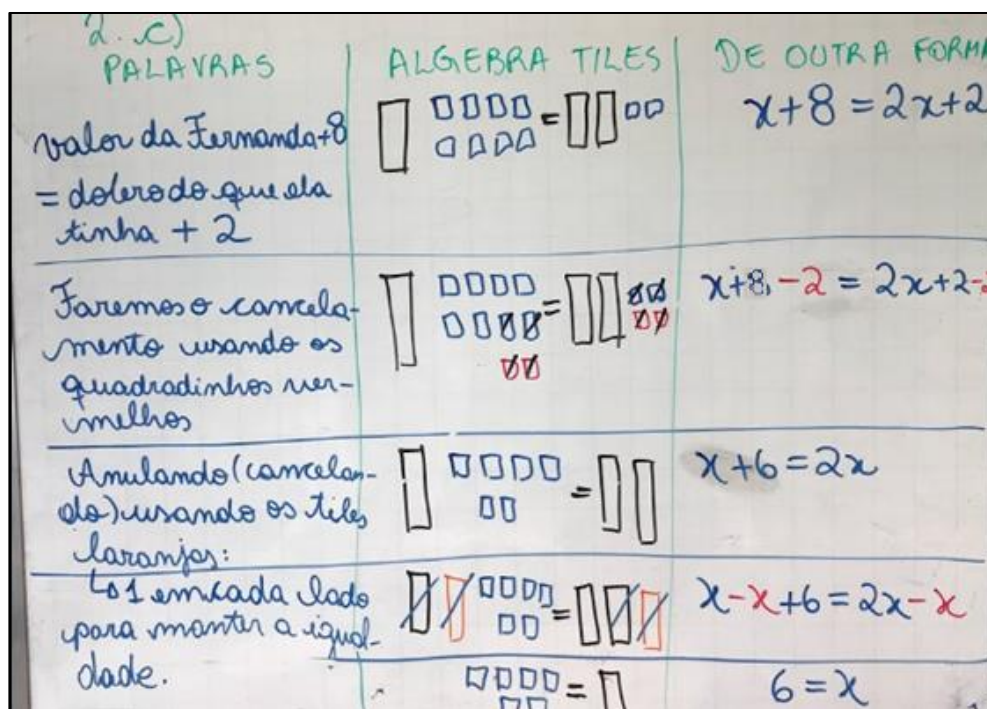 2. c)
PALAVRAS
ALGEBRA TILES
DE OUTRA FORMA
valor da Fernanda+8
= dobro do que ela
tinha + 2
=
x+8 = 2x+2
Faremos o cancela-
mento usando os
quadradinhos ver-
melhos
=
x+8 -2 = 2x+2-2
Anulando (cancelan-
do) usando os tiles
laranjas:
=
x+6 = 2x
↳ 1 em cada lado
para manter a igual-
dade.
=
x-x+6 = 2x-x
=
6 = x